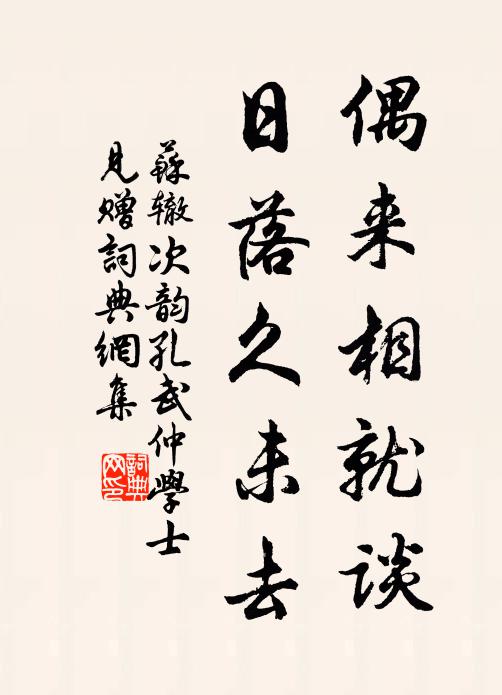 偶来相就談
日落久未去
蘇辙次韵孔武仲學士
見贈詞典網集
詞典网印